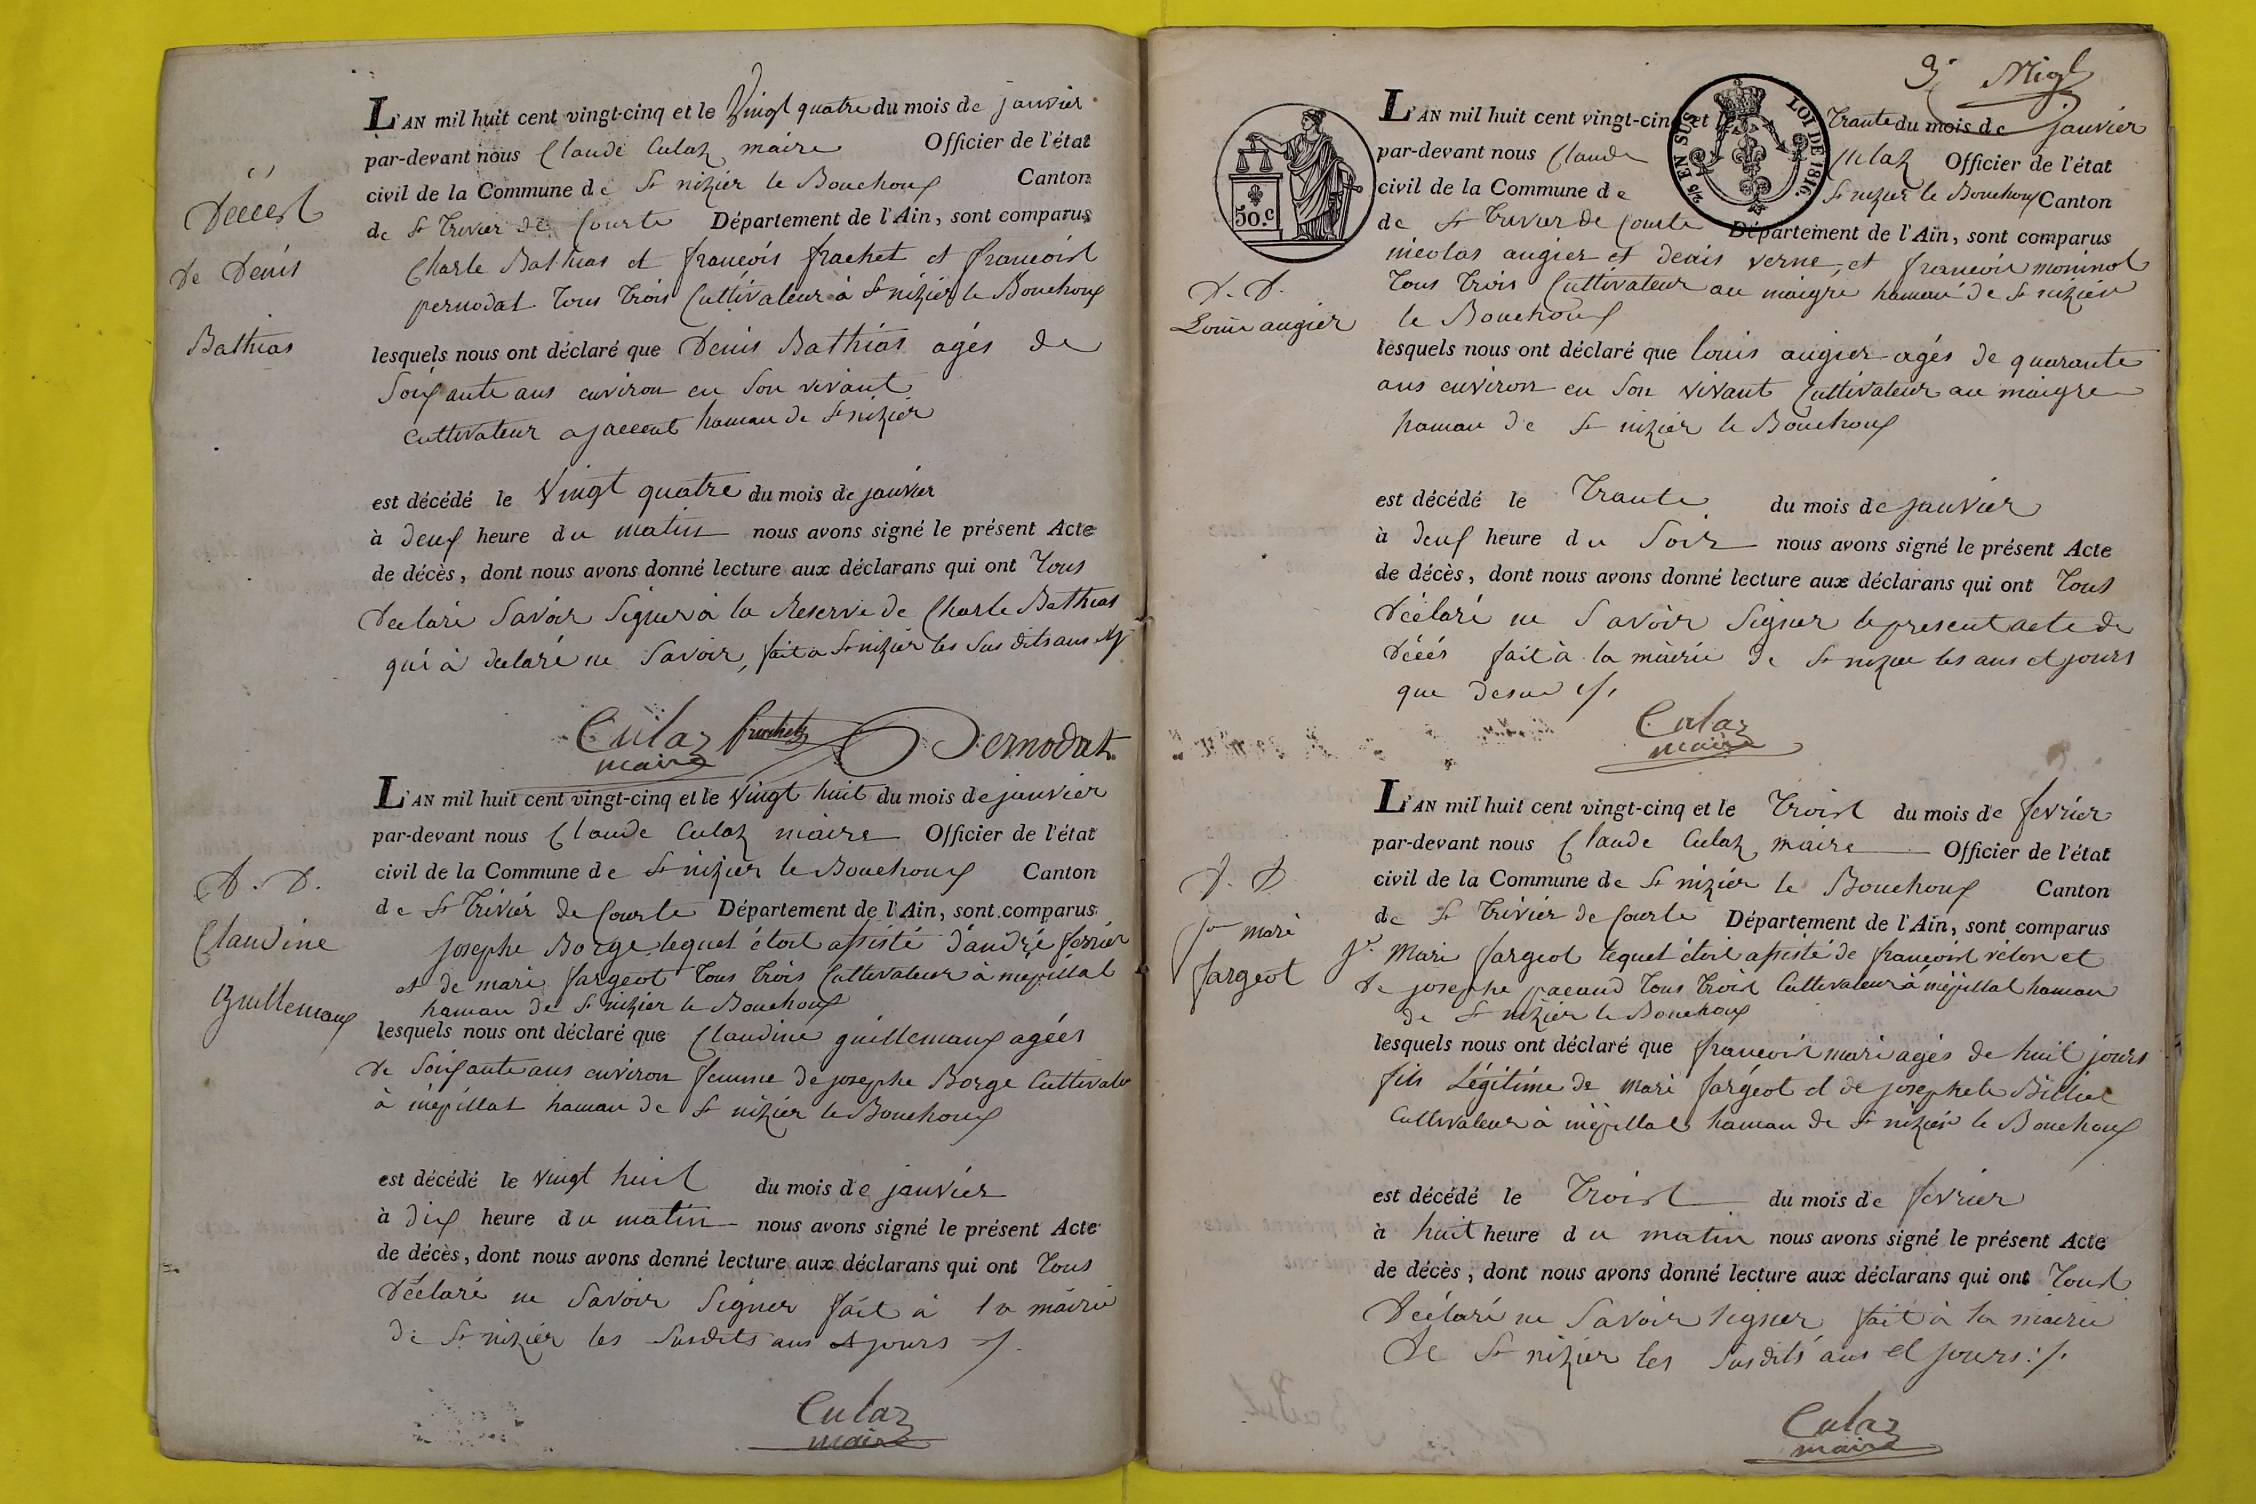 L'AN mil huit cent vingt-cinq et le Vingt quatre du mois de janvier
par-devant nous Claude Culaz maire Officier de l'état
civil de la Commune de St nizier le Bouchoux Canton
de St Trivier de Courte Département de l'Ain, sont comparus
Charle Bathias et françois frachet et françoist
pernodat Tous Trois Cultivateur à St nizier le Bouchoux
Décest
De Denis
Bathias
lesquels nous ont déclaré que Denis Bathias agés de
Soixante ans environ en Son vivant
cultivateur ajaccent hamau de St nizier
est décédé le Vingt quatre du mois de janvier
à deux heure du matin nous avons signé le présent Acte
de décès, dont nous avons donné lecture aux déclarans qui ont Tous
Déclaré Savoir Signer à la Reserve de Charle Bathias
qui à declaré ne Savoir, fait a St nizier les Sus dits ans
Culaz frachet Pernodat
maire
L'AN mil huit cent vingt-cinq et le Vingt huit du mois de janvier
par-devant nous Claude Culaz maire Officier de l'état
civil de la Commune de St nizier le Bouchoux Canton
de St Trivier de Courte Département de l'Ain, sont comparus
josephe Borge lequel étoit assisté d'andré ferrier
et de mari fargeot Tous Trois Cultivateur à mépillat
hamau de St nizier le Bouchoux
D. D.
Claudine
Guillemaux
lesquels nous ont déclaré que Claudine guillemaux agées
de Soixante ans environ femme de josephe Borge Cultivateur
à mépillat hamau de St nizier le Bouchoux
est décédé le vingt huit du mois de janvier
à dix heure du matin nous avons signé le présent Acte
de décès, dont nous avons donné lecture aux déclarans qui ont Tous
Déclaré ne Savoir Signer fait à la mairie
de St nizier les Susdits ans et jours
Culaz
maire
3.
50.c
2/5 EN SUS LOI DE 1816.
L'AN mil huit cent vingt-cinq et le Trante du mois de janvier
par-devant nous Claude Culaz Officier de l'état
civil de la Commune de St nizier le Bouchoux Canton
de St Trivier de Courte Département de l'Ain, sont comparus
nicolas augier et denis verne, et francois moninot
Tous Trois Cultivateur au maigre hamau de St nizier
le Bouchoux
D. D.
Louis augier
lesquels nous ont déclaré que louis augier agés de quarante
ans environ en Son vivant Cultivateur au maigre
hamau de St nizier le Bouchoux
est décédé le Trante du mois de janvier
à deux heure du Soir nous avons signé le présent Acte
de décès, dont nous avons donné lecture aux déclarans qui ont Tous
Déclaré ne Savoir Signer le present acte de
décés fait à la mairie de St nizier les ans et jours
que desus
Culaz
maire
L'AN mil huit cent vingt-cinq et le Troist du mois de fevrier
par-devant nous Claude Culaz maire Officier de l'état
civil de la Commune de St nizier le Bouchoux Canton
de St Trivier de Courte Département de l'Ain, sont comparus
Mari fargeot lequel étoit assisté de françoist velon et
de josephe pacaud Tous Troist Cultivateur à mépillat hamau
de St nizier le Bouchoux
D. D.
mari
fargeot
lesquels nous ont déclaré que françoist mari agés de huit jours
fils Légitime de mari fargeot et de josephete Billiet
Cultivateur à mépillat hamau de St nizier le Bouchoux
est décédé le Troist du mois de fevrier
à huit heure du matin nous avons signé le présent Acte
de décès, dont nous avons donné lecture aux déclarans qui ont Toust
Déclaré ne Savoir signer fait à la mairie
de St nizier les Susdits ans et jours
Culaz
maire